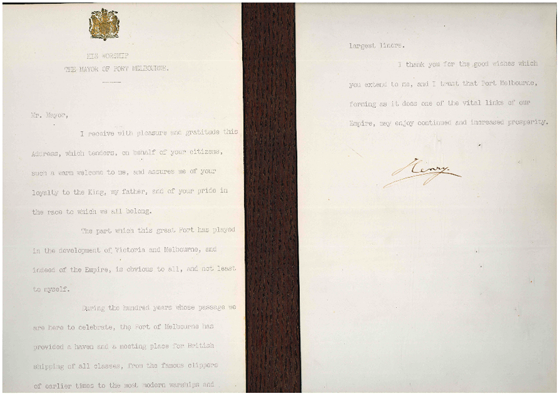 HIS WORSHIP
THE MAYOR OF PORT MELBOURNE.
Mr. Mayor,
I receive with pleasure and gratitude this
address, which tenders, on behalf of your citizens,
such a warm welcome to me, and assures me of your
loyalty to the King, my father, and of your pride in
the race to which we all belong.
The part which this great Port has played
in the development of Victoria and Melbourne, and
indeed of the Empire, is obvious to all, and not least
to myself.
During the hundred years whose passage we
are here to celebrate, the Port of Melbourne has
provided a haven and a resting place for British
shipping of all classes, from the famous clippers
of earlier times to the most modern warships and
largest liners.
I thank you for the good wishes which
you extend to me, and I trust that Port Melbourne,
forming as it does one of the vital links of our
Empire, may enjoy continued and increased prosperity.
Henry.